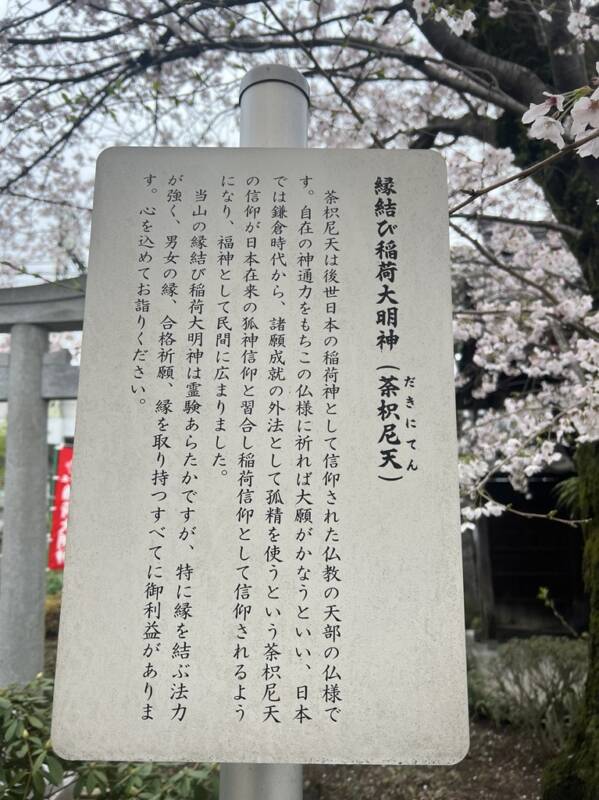 縁結び稲荷大明神（荼枳尼天）
だきにてん
荼枳尼天は後世日本の稲荷神として信仰された仏教の天部の仏様で
す。自在の神通力をもちこの仏様に祈れば大願がかなうといい、日本
では鎌倉時代から、諸願成就の外法として孤精を使うという荼枳尼天
の信仰が日本在来の狐神信仰と習合し稲荷信仰として信仰されるよう
になり、福神として民間に広まりました。
当山の縁結び稲荷大明神は霊験あらたかですが、特に縁を結ぶ法力
が強く、男女の縁、合格祈願、縁を取り持つすべてに御利益がありま
す。心を込めてお詣りください。